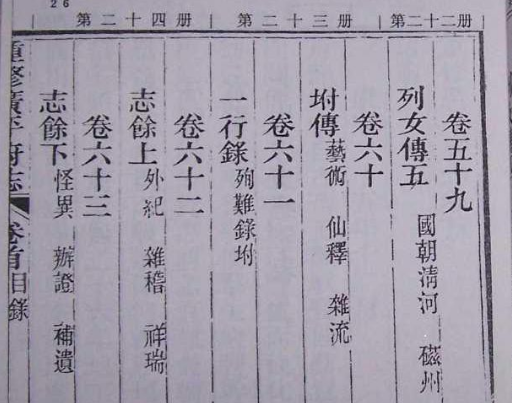 第二十二册
第二十三册
第二十四册
26
卷五十九
列女傳五 國朝清河 磁州
卷六十
坿傳 藝術 仙釋 雜流
卷六十一
一行錄 殉難錄坿
卷六十二
志餘上 外紀 雜稽 祥瑞
卷六十三
志餘下 怪異 辦證 補遺
重修廣平府志 卷首目錄